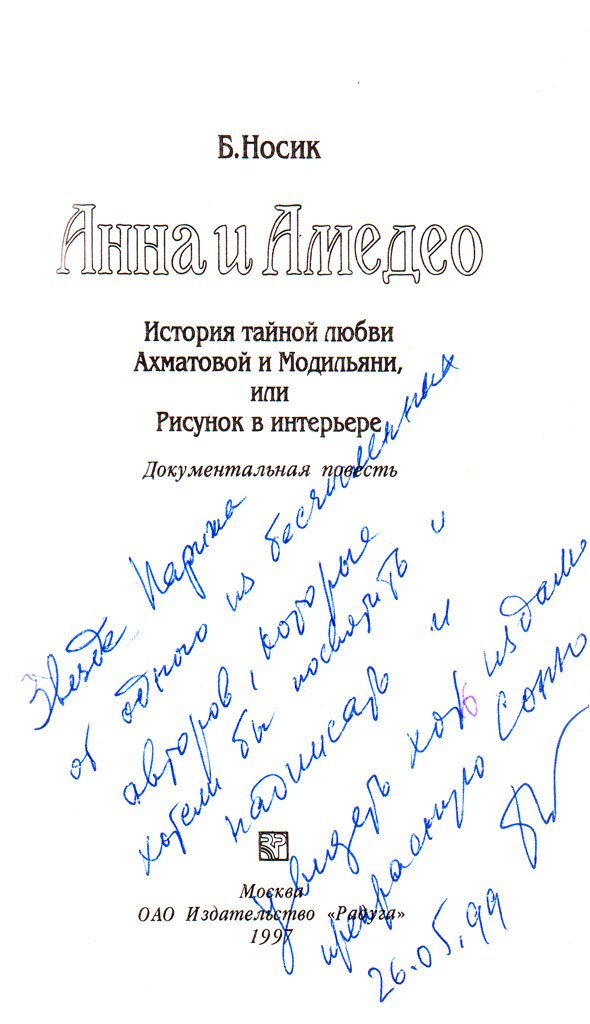 Б.Носик
Анна и Амедео
История тайной любви
Ахматовой и Модильяни,
или
Рисунок в интерьере
Документальная повесть
Звезде Парижа
от одного из бесчисленных
авторов, которые
хотели бы посвятить и
надписать и
увидеть хоть издали
прекрасную Соню
26.05.99
Москва
ОАО Издательство «Радуга»
1997